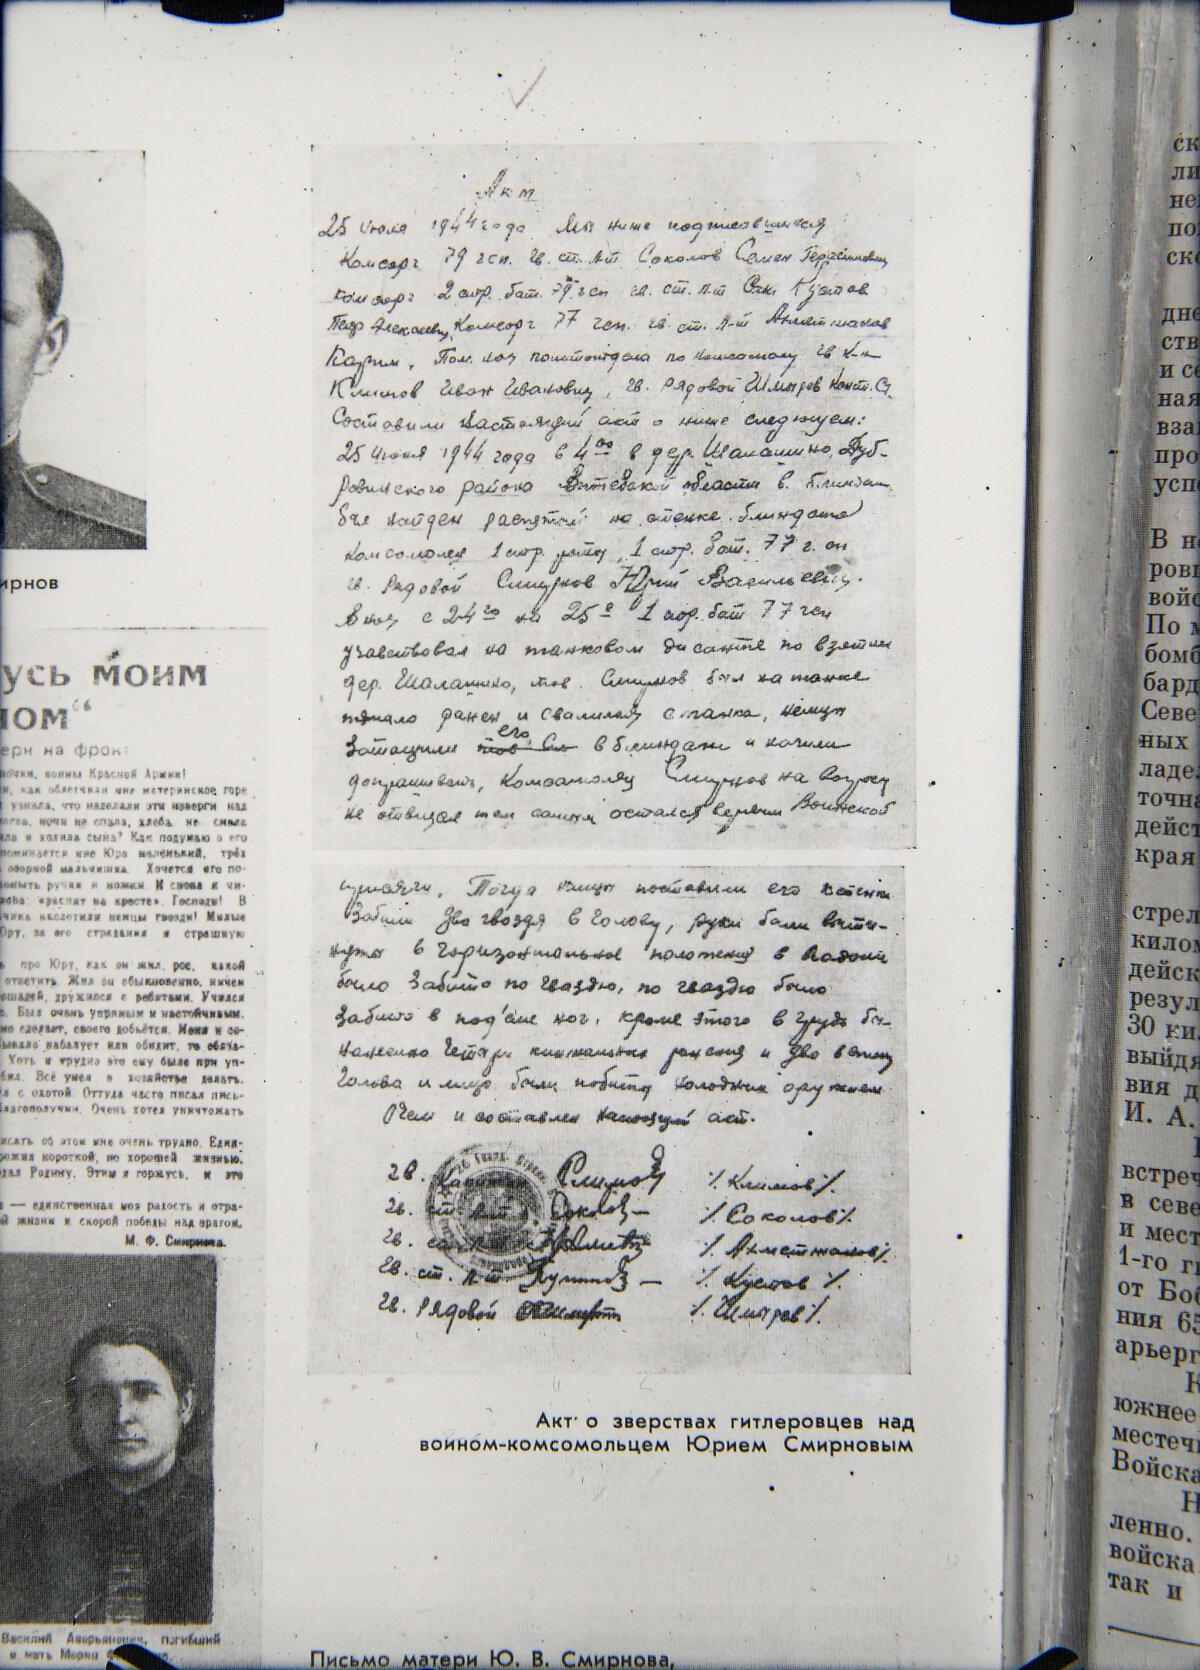 ирнов
усь моим
ном"
ери на фронт
почки, воины Красной Армии!
я, как облегчили мне материнское горе
узнала, что наделали эти изверги над
могла, ночи не спала, хлеба не
ила и холила сына? Как подумаю о его
поминается мне Юра маленький, трёх
озорной мальчишка. Хочется его по-
омыть ручки и ножки. И снова я чи-
лова: «распят на кресте». Господи! В
чика колотили немцы гвозди! Милые
Юру, за его страдания и страшную
ь про Юру, как он жил, рос, какой
ответить. Жил он обыкновенно, ничем
ошадей, дружился с ребятами. Учился
о. Был очень упрямым и настойчивым.
но сделает, своего добьётся. Меня и се-
бывало набалует или обидит, то обяза-
Хоть и трудно это ему было при уп-
бил. Всё умел в хозяйстве делать.
л с охотой. Оттуда часто писал пись-
благополучии. Очень хотел уничтожать
исать об этом мне очень трудно. Един-
рожил короткой, но хорошей жизнью,
дал Родину. Этим я горжусь, и это
— единственная моя радость и отра-
ей жизни и скорой победы над врагом.
М. Ф. Смирнова.
Василий Аверьянович, погибший
и мать Мария
Акт
25 июля 1944 года Мы ниже подписавшиеся
Комсорг 79 гсп. гв. ст. л-т Соколов Семен Герасимович
комсорг 2 стр. бат. 79 гсп гв. ст. л-т Кустов
Петр Алексеевич, Комсорг 77 гсп. гв. ст. л-т Ахметжанов
Карим, Пом. нач политотдела по комсомолу гв к-н
Климов Иван Иванович, гв. рядовой Шмырев Конст. Ст.
Составили настоящий акт о ниже следующем:
25 июня 1944 года в 4 00 в дер. Шалашино, Дуб-
ровинского района Витебской области в блиндаж
был найден распятый на стенке блиндажа
комсомолец 1 стр. роты, 1 стр. бат. 77 г. сп
гв. рядовой Смирнов Юрий Васильевич.
В ночь с 24 го на 25 е 1 стр. бат 77 гсп
участвовал на танковом десанте по взятии
дер. Шалашино, тов. Смирнов был на танке
тяжело ранен и свалился с танка, немцы
затащили его в блиндаж и начали
допрашивать, Комсомолец Смирнов на вопросы
не отвечал тем самым остался верным Воинской
присяги. Тогда немцы поставили его к стенки
Забили два гвоздя в голову, руки были вытя-
нуты в горизонтальное положение в ладони
было забито по гвоздю, по гвоздю было
забито в под'еме ног, кроме этого в грудь бы-
нанесено четыре кинжальных ранения и два в спину
Голова и лицо были побиты холодным оружием
О чем и составлен настоящий акт.
гв. Климов /.Климов/.
гв. Соколов /.Соколов/.
гв. /.Ахметжанов/.
гв. ст. л-т Кустов /.Кустов/.
гв. рядовой /.Шмырев/.
Акт о зверствах гитлеровцев над
воином-комсомольцем Юрием Смирновым
Письмо матери Ю. В. Смирнова,
ск
ли
не
по
ск
дне
ств
и се
ная
вза
про
усп
В н
ров
войс
По м
бомб
бард
Севе
ных
ладе
точна
дейст
края
стрел
килом
дейск
резул
30 ки
выйдя
вия д
И. А.
встреч
в севе
и мест
1-го г
от Боб
ния 65
арьерг
К
южнее
местеч
Войска
Н
ленно.
войска
так и